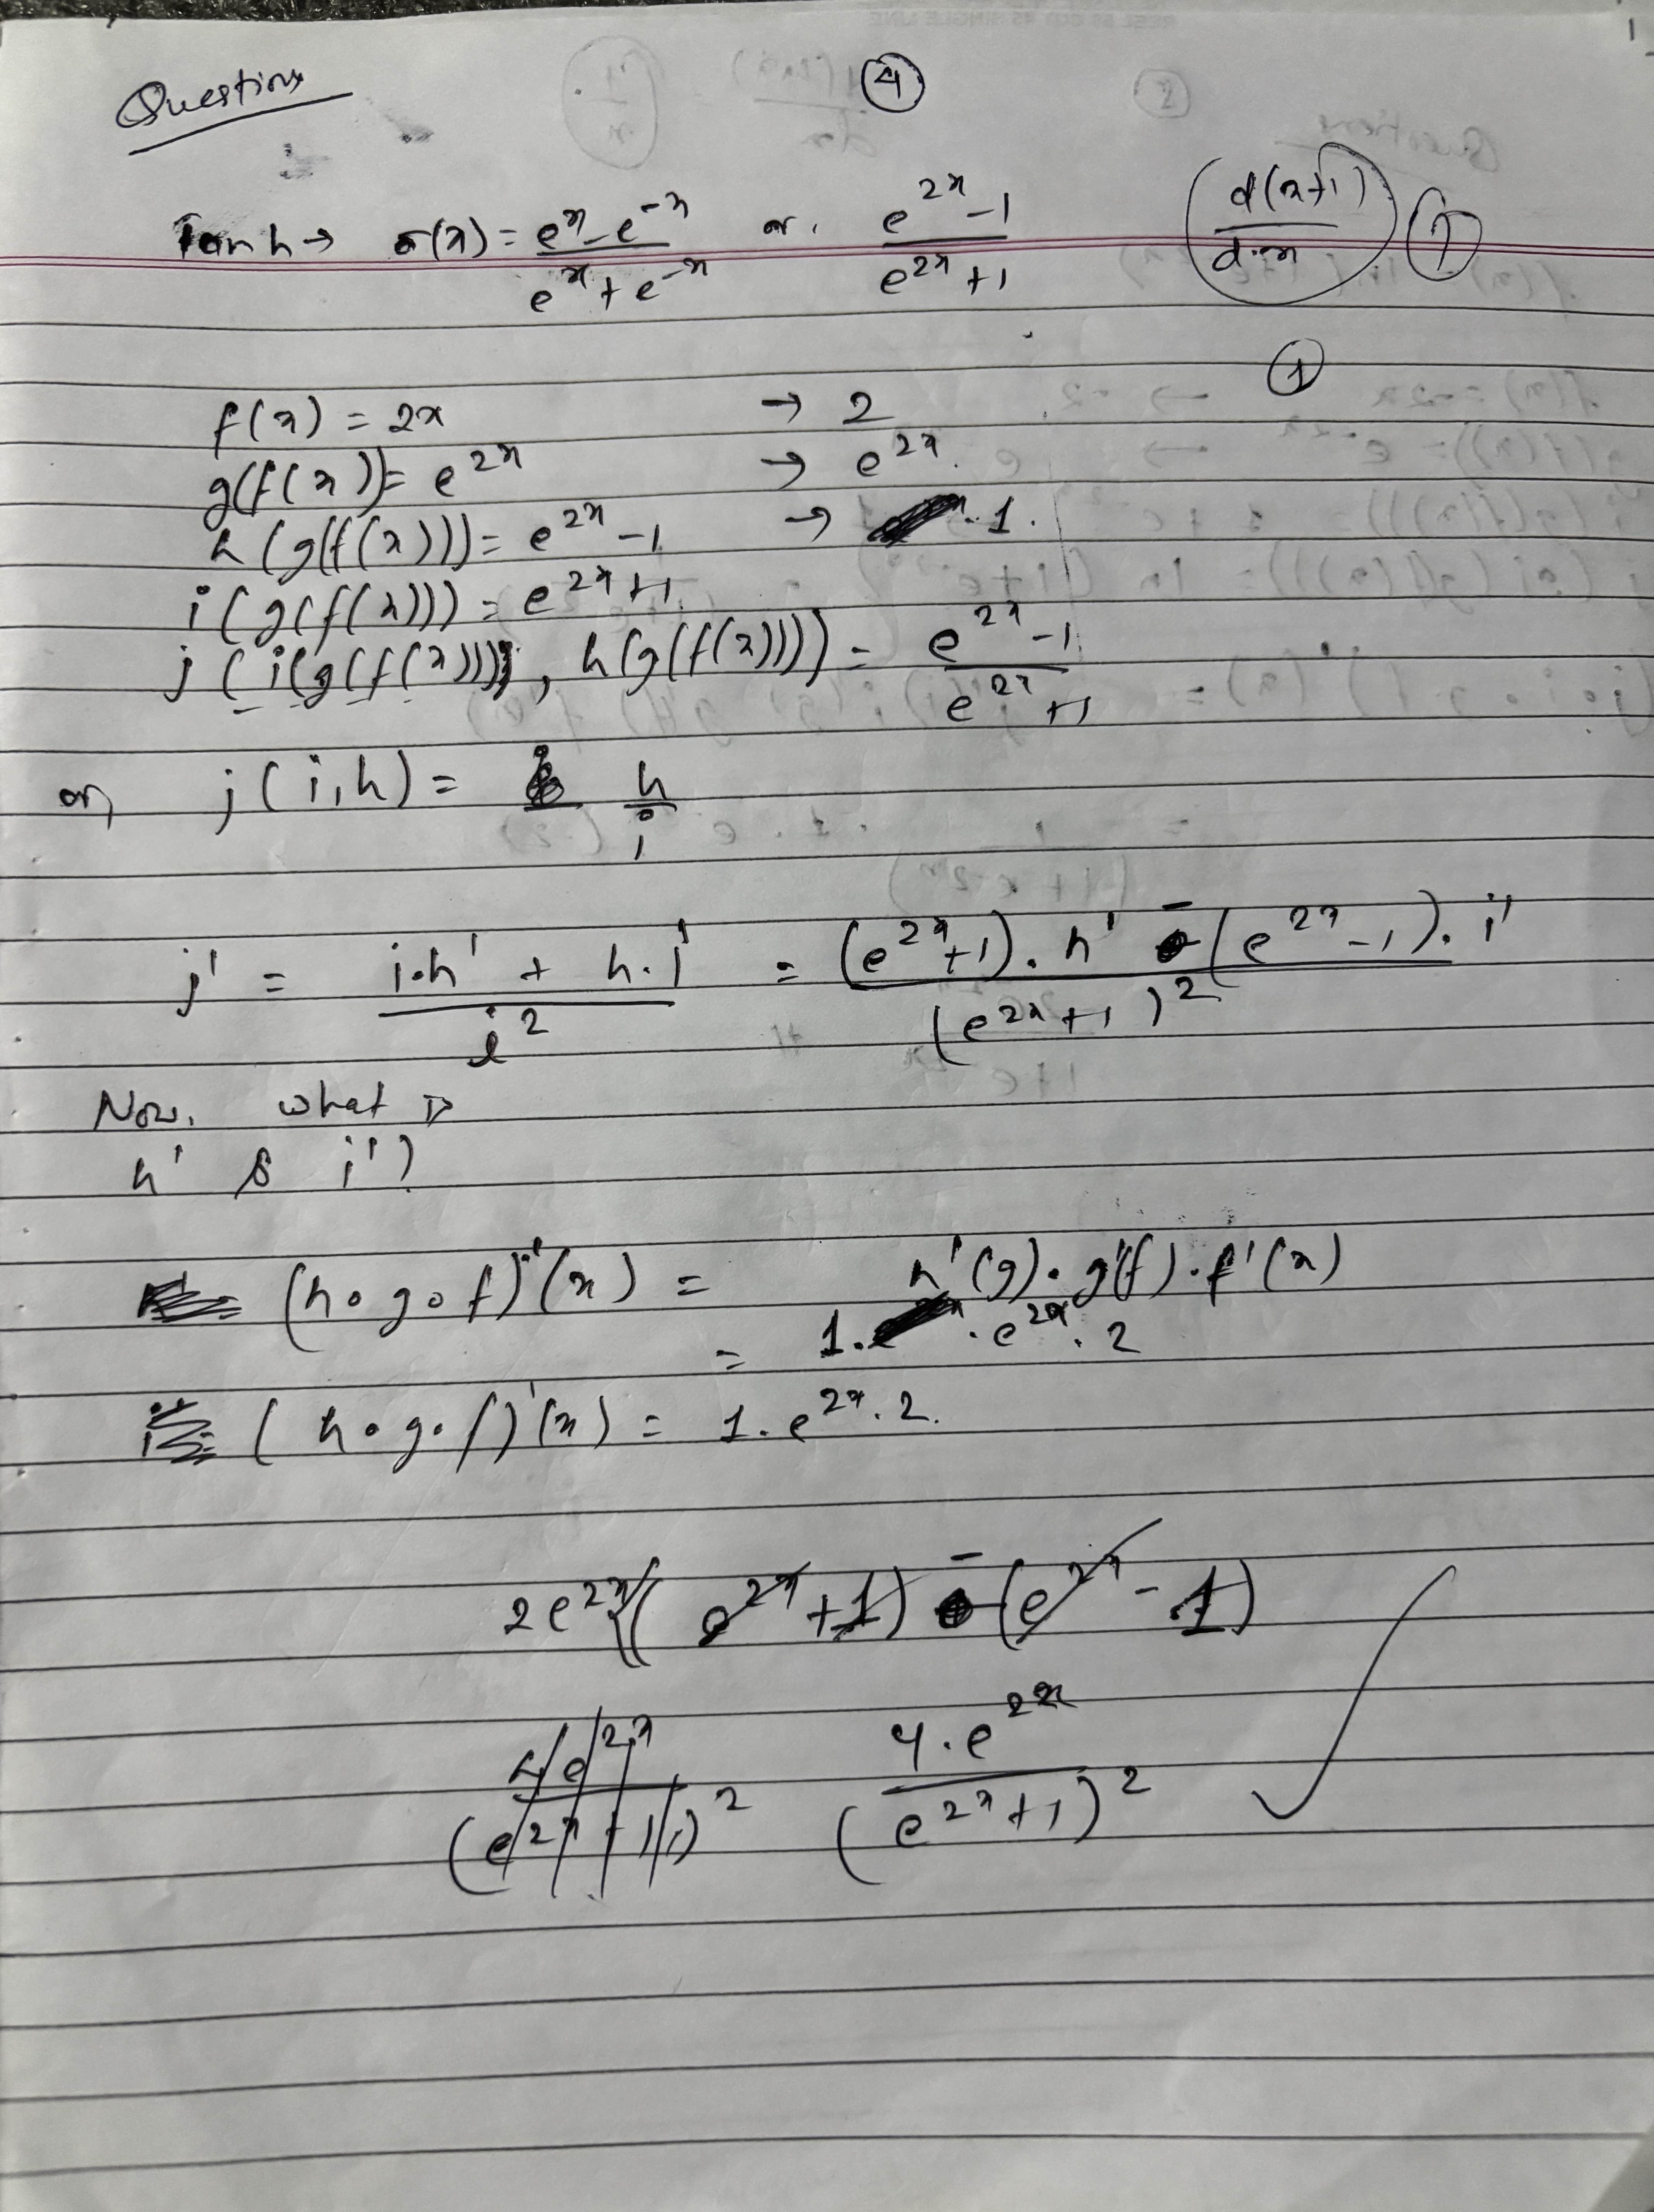 Question
4
Tanh → σ(x) = (e^x - e^-x)/(e^x + e^-x) or. (e^2x - 1)/(e^2x + 1) (d(x+1)/d.x) 1
1
f(x) = 2x → 2
g(f(x)) = e^2x → e^2x.
h(g(f(x))) = e^2x - 1 → 1.
i(g(f(x))) = e^2x + 1
j(i(g(f(x))), h(g(f(x)))) = (e^2x - 1)/(e^2x + 1)
or, j(i, h) = h/i
j' = (i.h' + h.i')/i^2 = ((e^2x + 1). h' - (e^2x - 1). i')/(e^2x + 1)^2
Now. what is
h' & i' ?
(h∘g∘f)'(x) = h'(g). g'(f). f'(x)
= 1. . e^2x. 2
(h∘g∘f)'(x) = 1. e^2x. 2.
2e^2x{(e^2x + 1) - (e^2x - 1)
4e^2x/(e^2x + 1)^2 4.e^2x/(e^2x + 1)^2